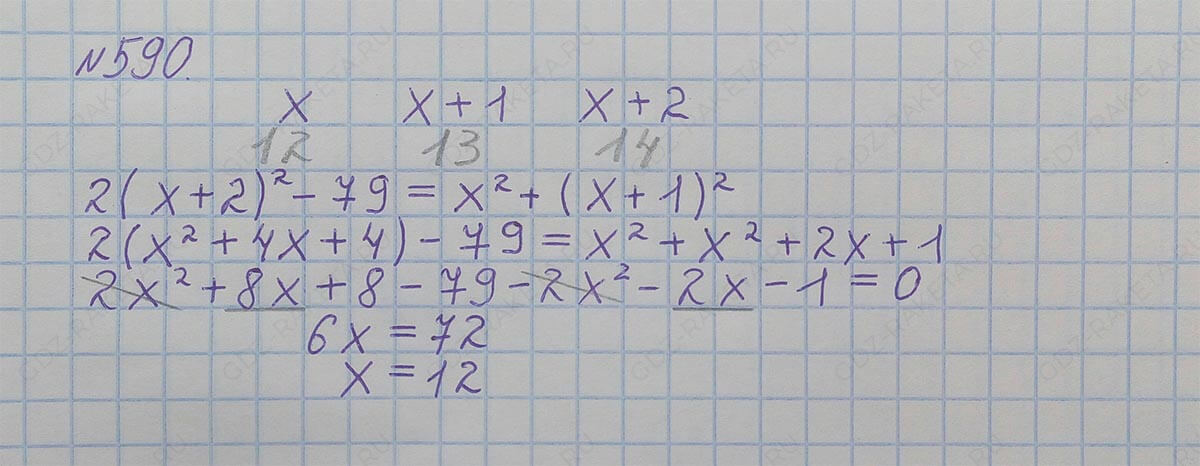 №590.
x x + 1 x + 2
12 13 14
2(x+2)² - 79 = x² + (x + 1)²
2(x² + 4x + 4) - 79 = x² + x² + 2x + 1
2x² + 8x + 8 - 79 - 2x² - 2x - 1 = 0
6x = 72
x = 12
GDZ-RAKETA.RU